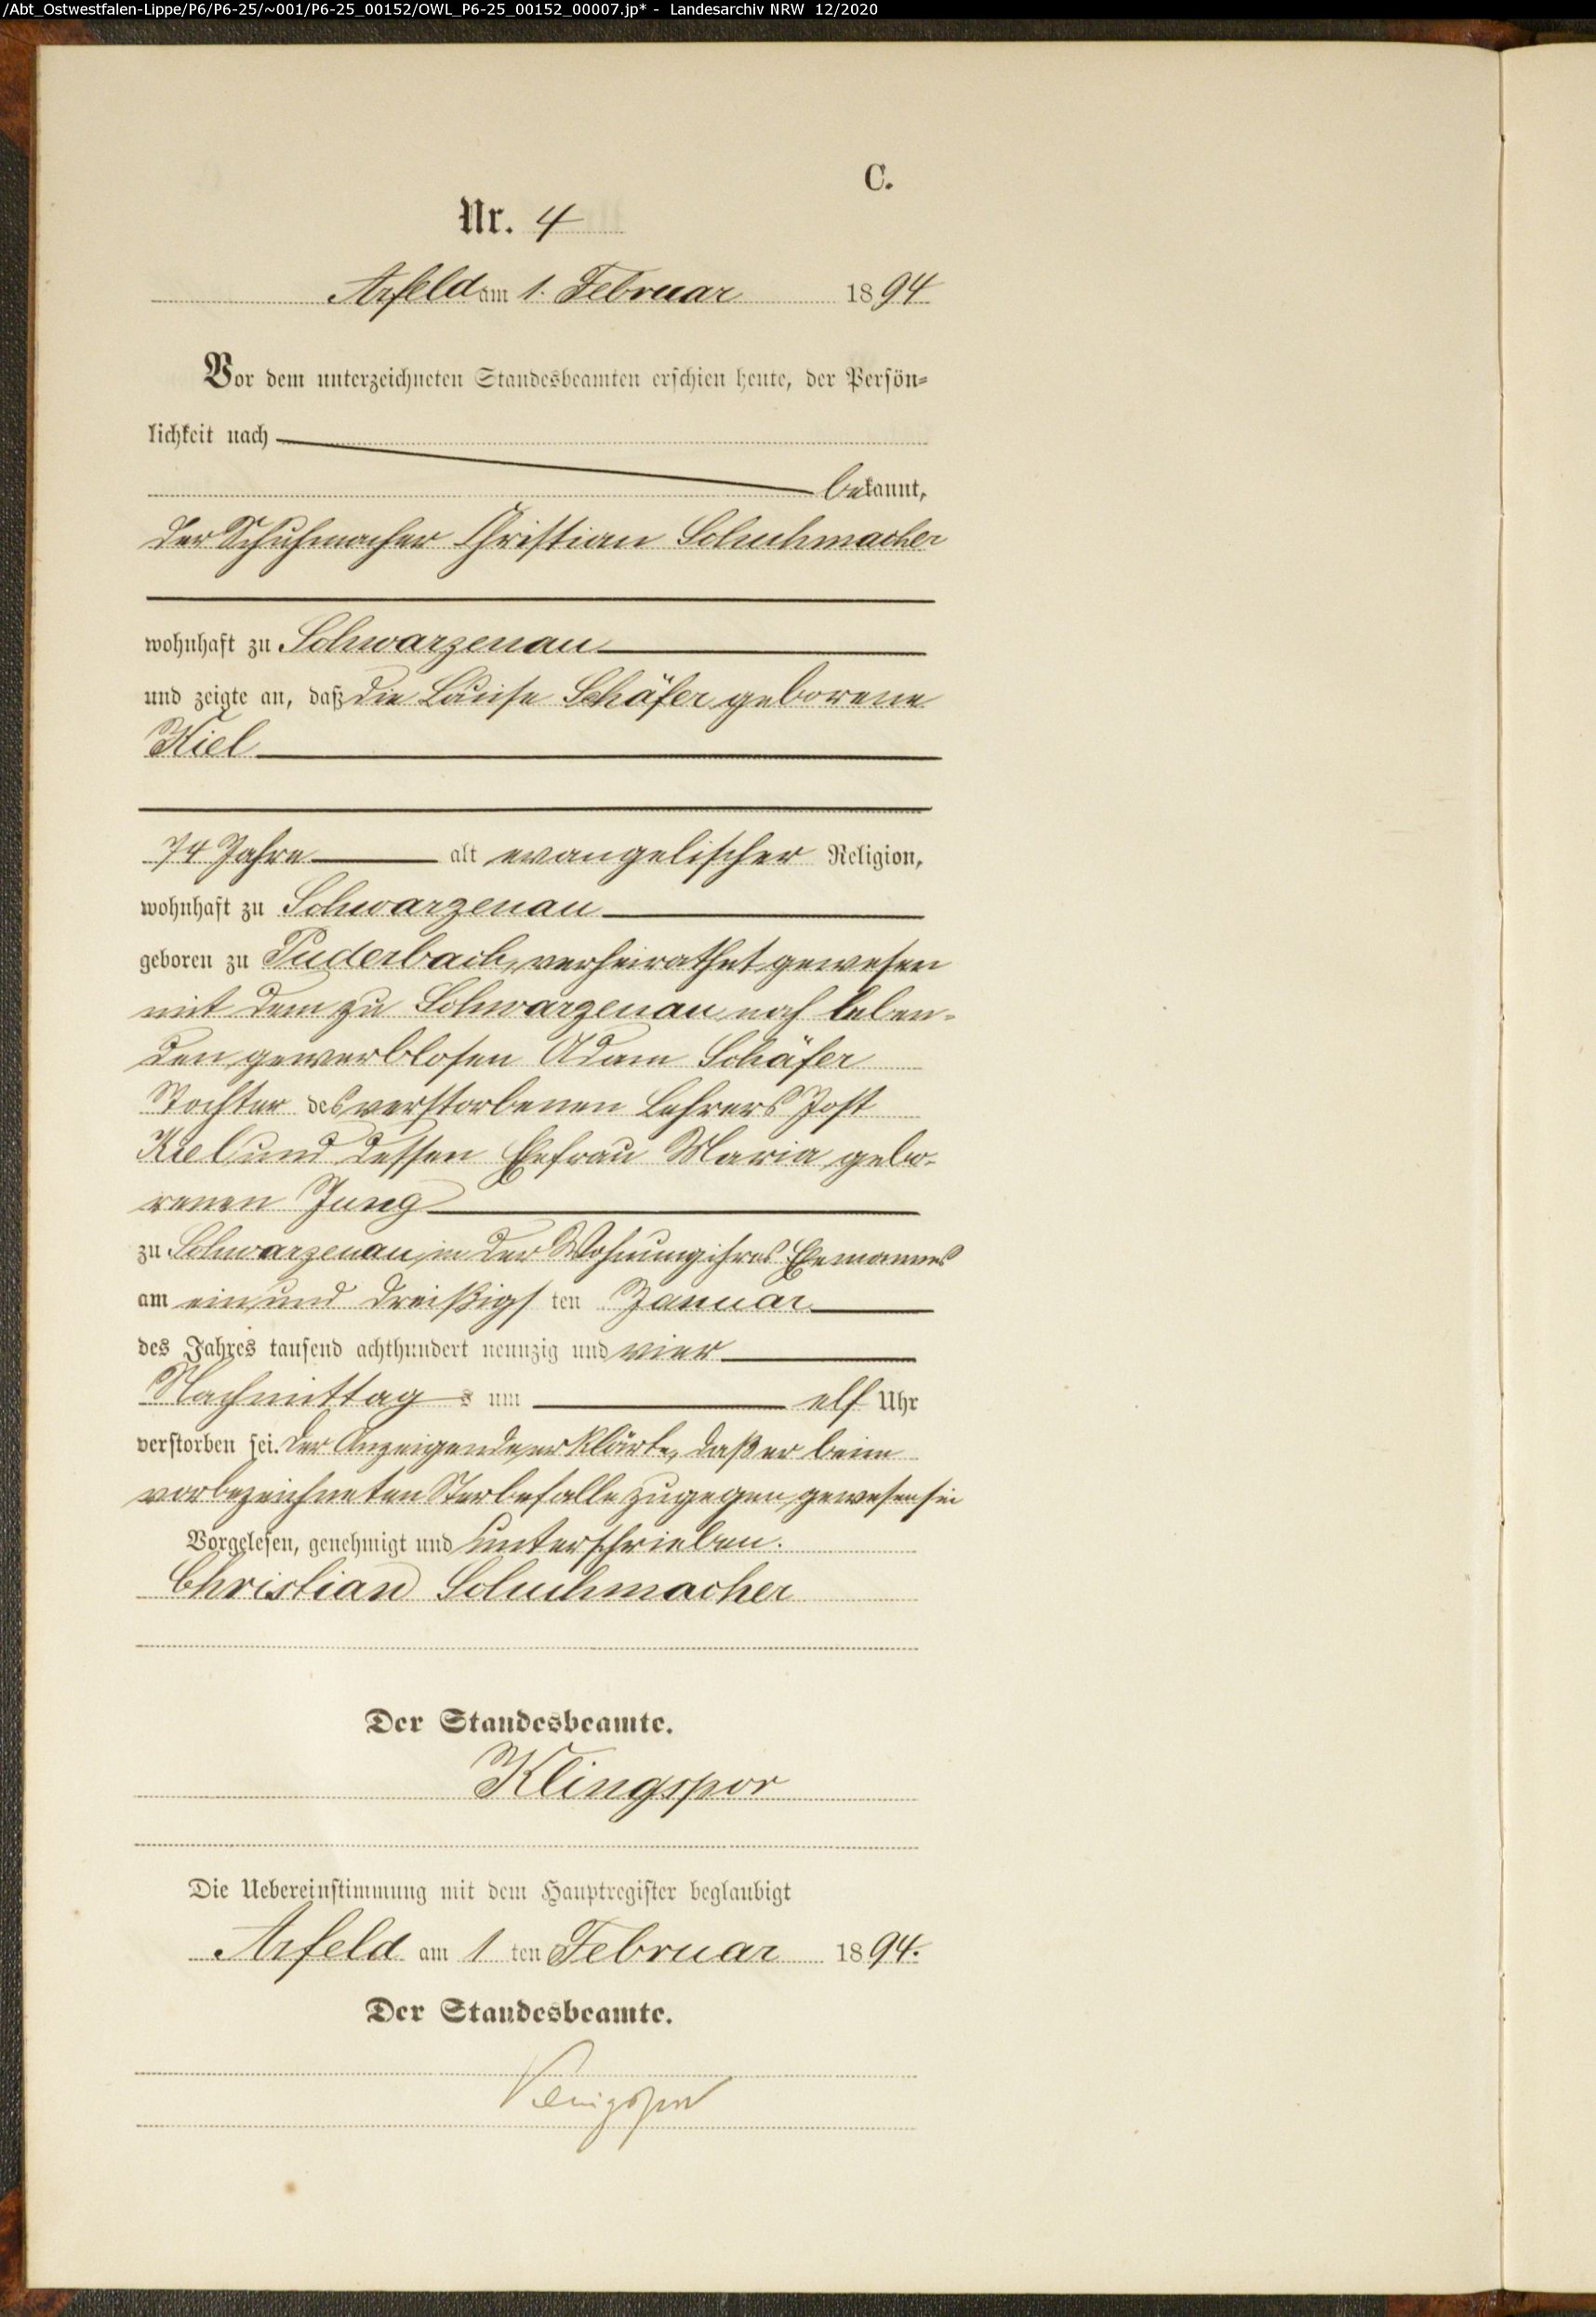 /Abt_Ostwestfalen-Lippe/P6/P6-25/~001/P6-25_00152/OWL_P6-25_00152_00007.jp* - Landesarchiv NRW 12/2020
C.
Nr. 4
Arfeld am 1. Februar 1894
Vor dem unterzeichneten Standesbeamten erschien heute, der Persön-
lichkeit nach
bekannt,
der Schuhmacher Christian Schuhmacher
wohnhaft zu Schwarzenau
und zeigte an, daß die Louise Schäfer geborene
Kiel
74 Jahre alt evangelischer Religion,
wohnhaft zu Schwarzenau
geboren zu Puderbach, verheirathet gewesen
mit dem zu Schwarzenau noch leben-
den gewerblosen Adam Schäfer
Tochter des verstorbenen Lehrers Jost
Kiel und dessen Ehefrau Maria gebo-
renen Jung
zu Schwarzenau, in der Wohnung ihres Ehemannes
am ein und dreißigsten Januar
des Jahres tausend achthundert neunzig und vier
Nachmittags um elf Uhr
verstorben sei. Der Anzeigende erklärte, daß er beim
vorbezeichneten Sterbefalle zugegen gewesen sei
Vorgelesen, genehmigt und unterschrieben.
Christian Schuhmacher
Der Standesbeamte.
Klingspor
Die Uebereinstimmung mit dem Hauptregister beglaubigt
Arfeld am 1 ten Februar 1894.
Der Standesbeamte.
Klingspor